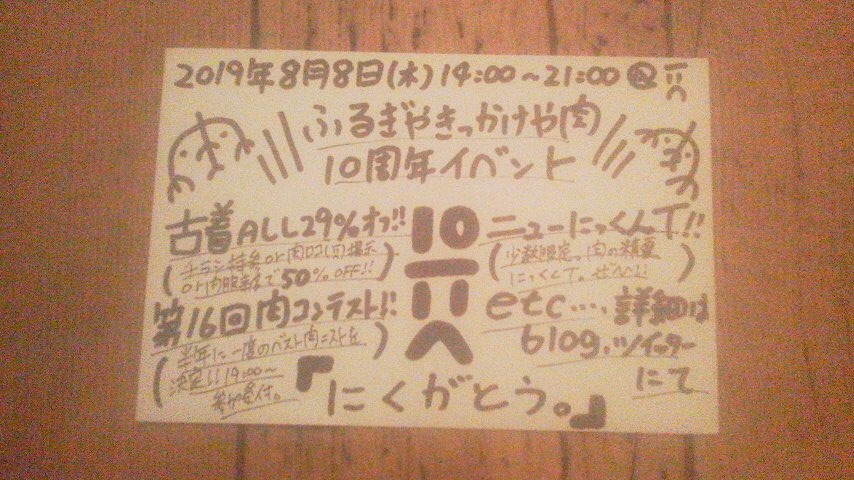 2019年8月8日(木) 14:00~21:00 @
ふるぎやきっかけや肉
10周年イベント
古着ALL29%オフ!!
(チラシ持参or肉ロゴ提示
or肉服着で50%OFF!!)
第16回肉コンテスト!!
(半年に一度のベスト肉ニストを
決定!!19:00~
参加受付。)
10
ニューにっくんT!!
(少数限定。肉の精霊
にっくんT。ぜひ!!)
etc…. 詳細は
blog,ツイッター
にて
『にくがとう。』